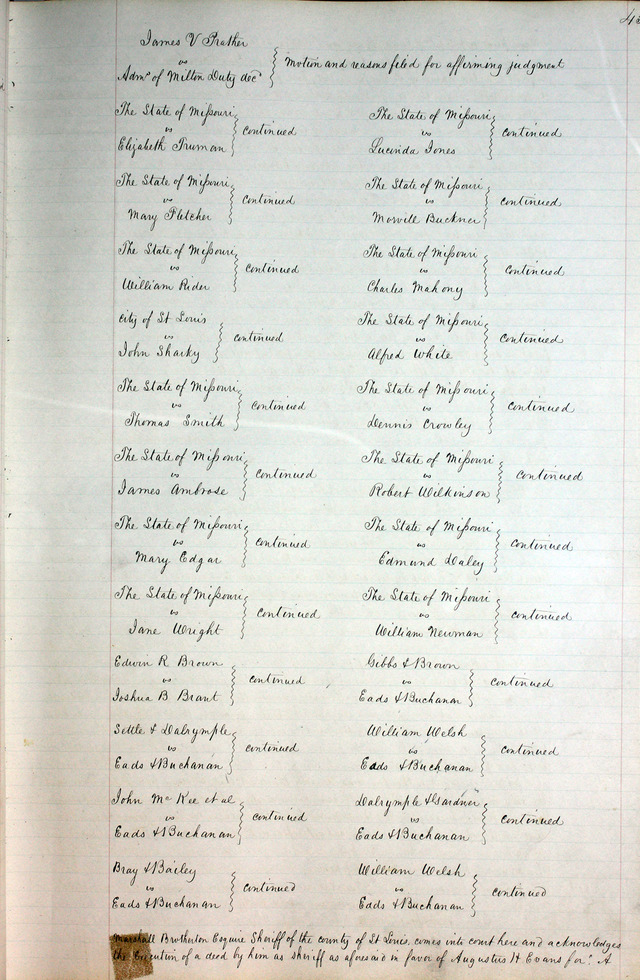 James V Prather
vs
Adm.rs of Milton Duty dec.d
Motion and reasons filed for affirming judgment
The State of Missouri
vs
Elizabeth Truman
continued
The State of Missouri
vs
Lucinda Jones
continued
The State of Missouri
vs
Mary Fletcher
continued
The State of Missouri
vs
Morvill Buckner
continued
The State of Missouri
vs
William Rider
continued
The State of Missouri
vs
Charles Mahony
continued
City of St Louis
vs
John Sharky
continued
The State of Missouri
vs
Alfred White
continued
The State of Missouri
vs
Thomas Smith
continued
The State of Missouri
vs
Dennis Crowley
continued
The State of Missouri
vs
James Ambrose
continued
The State of Missouri
vs
Robert Wilkinson
continued
The State of Missouri
vs
Mary Edgar
continued
The State of Missouri
vs
Edmund Daley
continued
The State of Missouri
vs
Jane Wright
continued
The State of Missouri
vs
William Newman
continued
Edwin R Brown
vs
Joshua B Brant
continued
Gibbs & Brown
vs
Eads & Buchanan
continued
Settle & Dalrymple
vs
Eads & Buchanan
continued
William Welsh
vs
Eads & Buchanan
continued
John McKee et al
vs
Eads & Buchanan
continued
Dalrymple & Gardner
vs
Eads & Buchanan
continued
Bray & Bailey
vs
Eads & Buchanan
continued
William Welsh
vs
Eads & Buchanan
continued
Marshall Brotherton Esquire Sheriff of the county of St Louis, comes into court here and acknowledges
the Execution of a deed by him as sheriff as aforesaid in favor of Augustus H Evans for. A